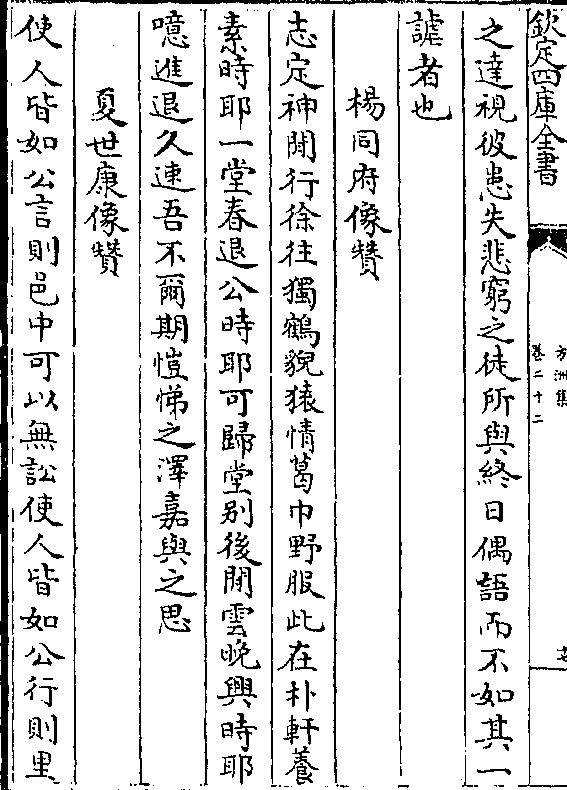 欽定四庫全書
方洲集
卷二十二
之達視彼患失悲窮之徒所與終日偶語而不如其一
謔者也
楊同府像贊
志定神閒行徐往獨鶴貌猿情葛巾野服此在朴軒養
素時耶一堂春退公時耶可歸堂别後閒雲晚興時耶
噫進退久速吾不爾期愷悌之澤嘉與之思
夏世康像贊
使人皆如公言則邑中可以無訟使人皆如公行則里